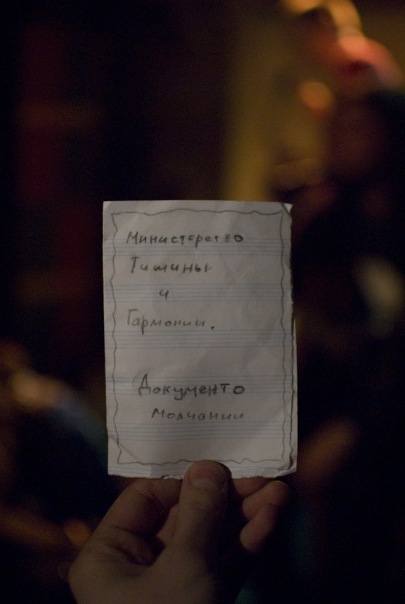 Министерство
Тишины
и
Гармонии.
Документо
молчании